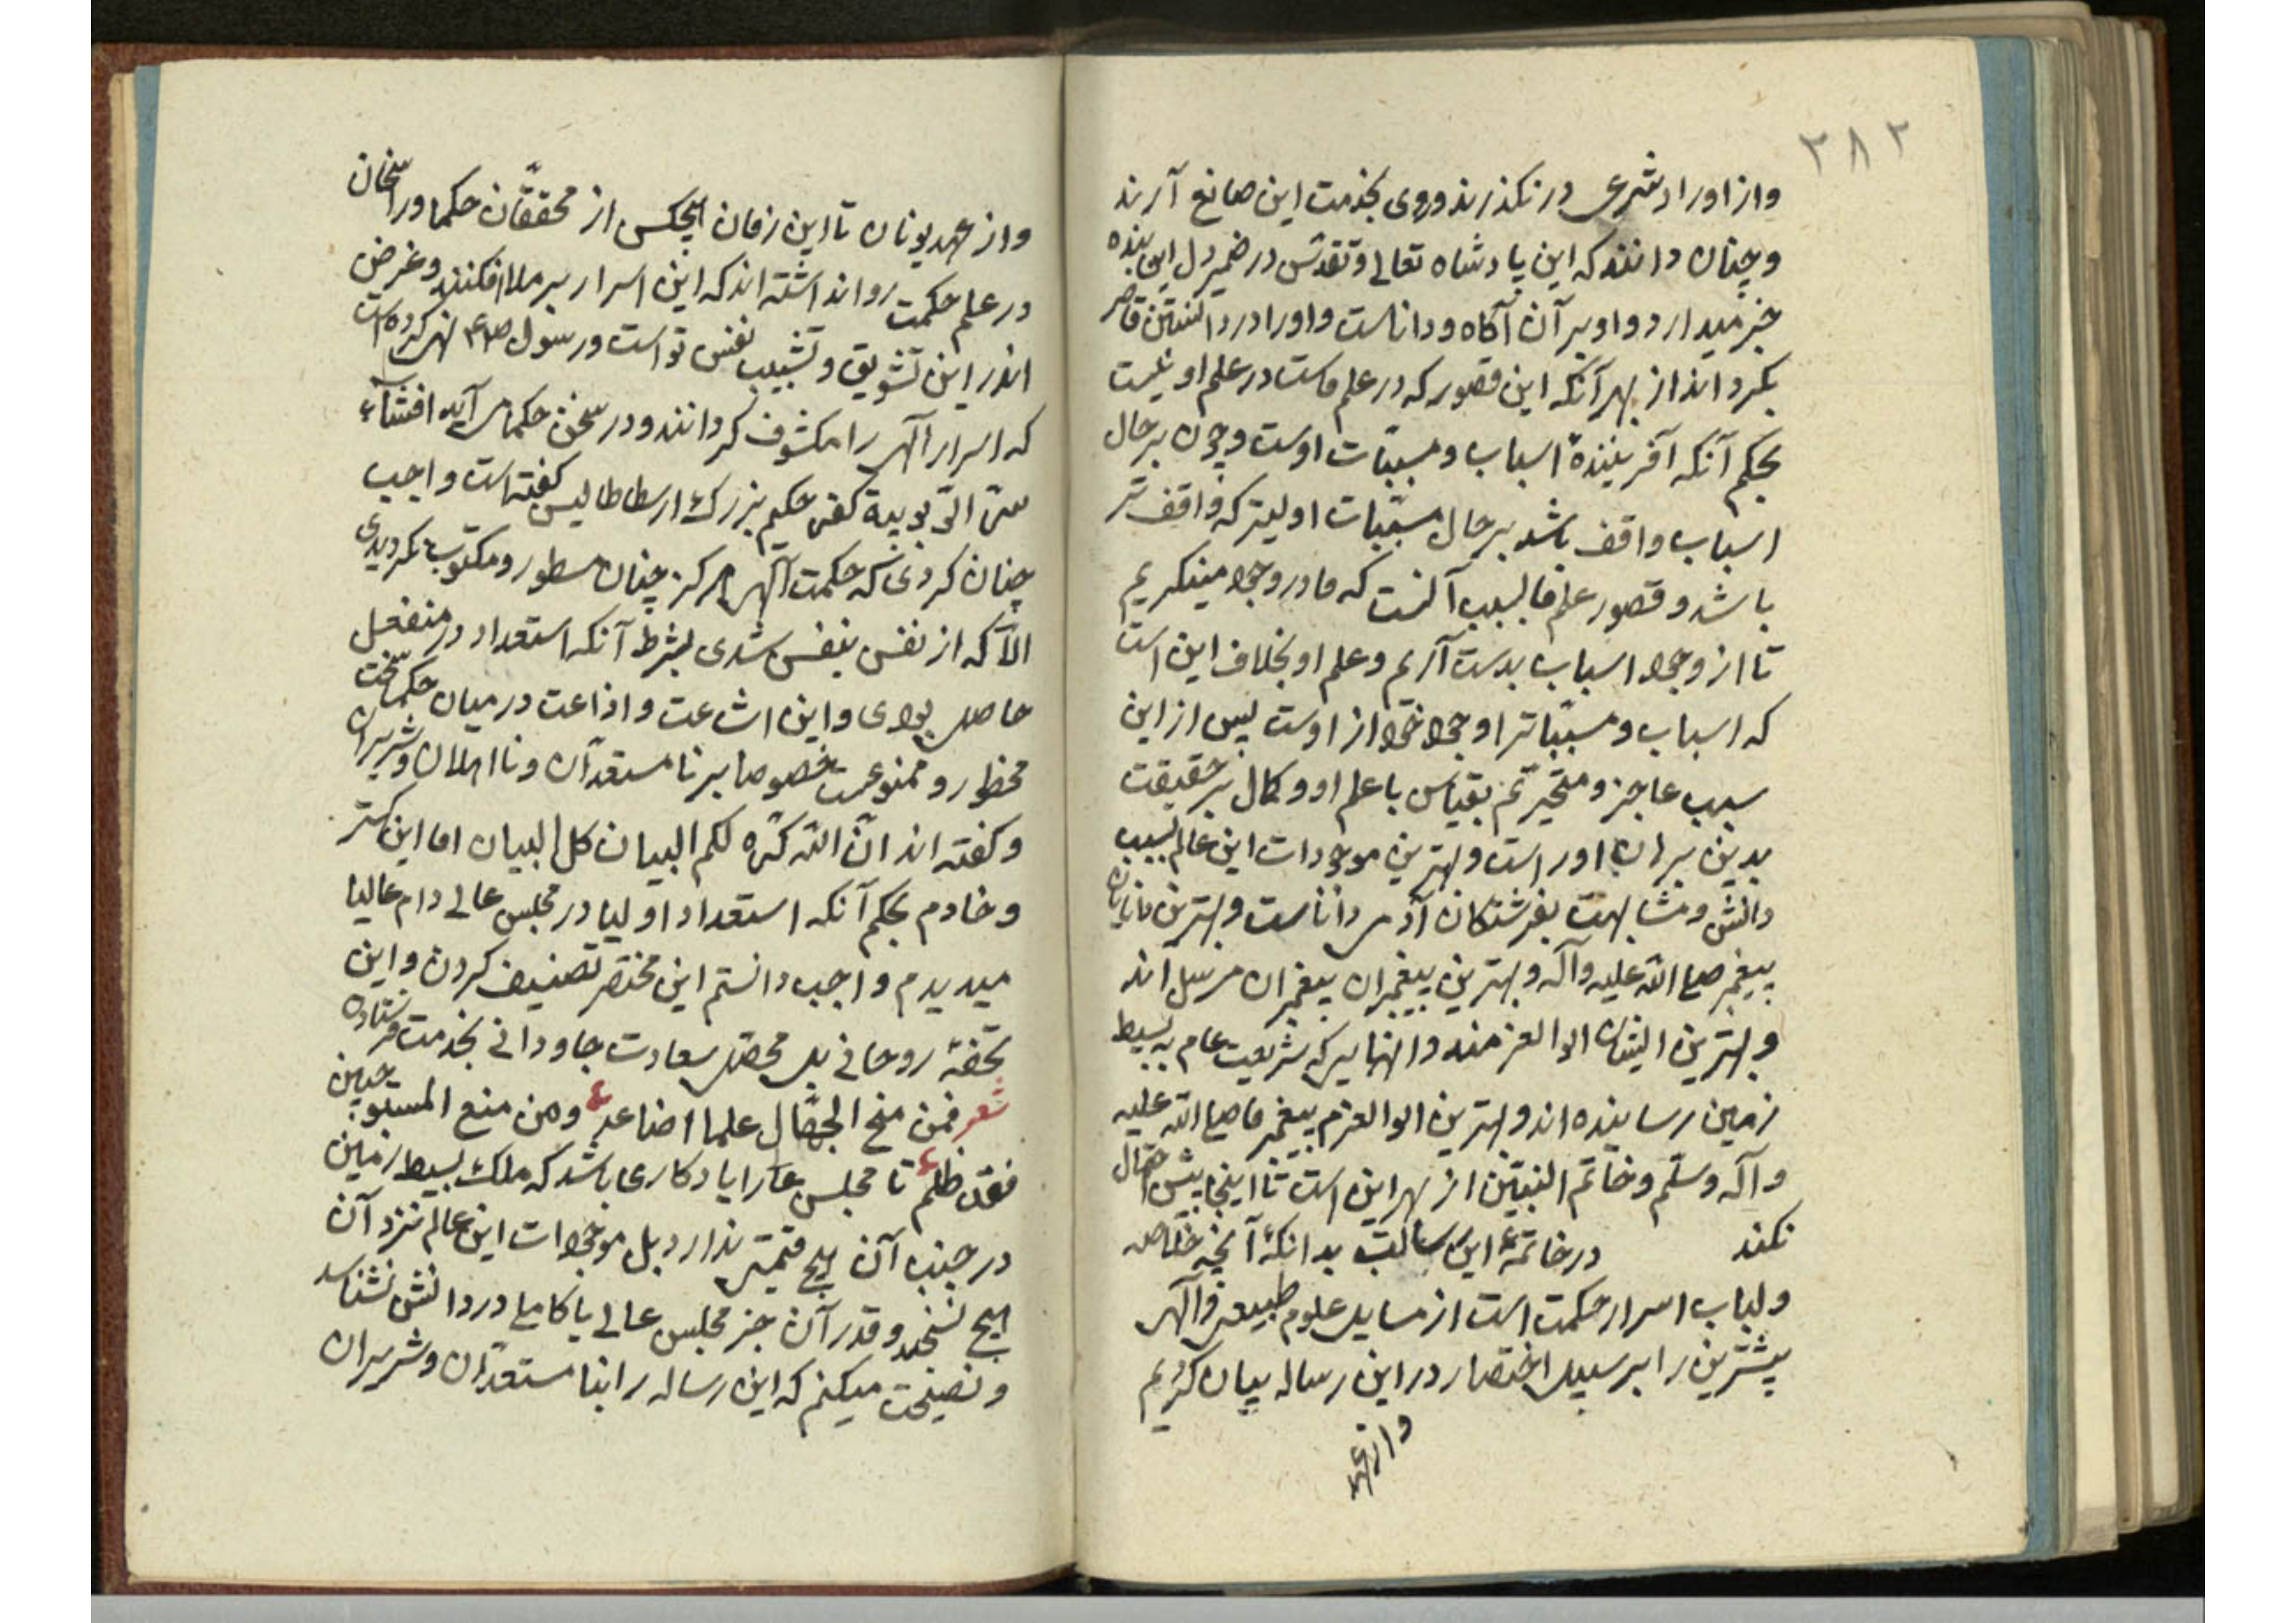 ۲۸۲
واز اوراد شرعی در نکذرند وروی بخدمت این صانع آرند
وچنان دانند که این پادشاه تعالی وتقدس در ضمیر دل این بنده
خبر میدارد واو بر آن آکاه وداناست واورا در دانستن قاصر
نکردانند از بهر آنکه این قصور که در علم ماست در علم او نیست
بحکم آنکه آفریننده اسباب ومسببات اوست وچون بر حال
اسباب واقف باشد بر حال مسببات اولیتر که واقف تر
باشد وقصور علم ما بسبب آنست که ما در وجود مینکریم
تا از وجود اسباب بدست آریم وعلم او بخلاف این است
که اسباب ومسببات را وجود خود از اوست پس از این
سبب عاجز ومتحیریم بقیاس با علم او وکمال بر حقیقت
بدین برهان اوراست وبهترین موجودات این عالم بسبب
دانش ومشابهت بفرشتکان آدمی داناست وبهترین دانایان
پیغمبر صلی الله علیه وآله وبهترین پیغمبران پیغمبران مرسل اند
وبهترین ایشان اولو العزمند وانهایی که شریعت عام به بسیط
زمین رسانیده اند وبهترین اولو العزم پیغمبر ما صلی الله علیه
وآله وسلم وخاتم النبیین از بهر این است تا اینجا بیش احتمال
نکند در خاتمه این رسالت بدانکه آنچه خلاصه
ولباب اسرار حکمت است از مسایل علوم طبیعی والهی
بیشترین را بر سبیل اختصار در این رساله بیان کردیم
واز عهد
واز عهد یونان تا این زمان هیچکس از محققان حکما وراسخان
در علم حکمت روا نداشته اند که این اسرار بر ملا افکنند وغرض
اندر این تشویق وتشبیب نفس تو است ورسول صلعم نهی کرده است
که اسرار الهی را مکشوف کردانند ودر سخن حکما می آید افشاء
سر الربوبیة کفر حکیم بزرک ارسطاطالیس کفته است واجب
چنان کردی که حکمت الهی هرکز چنان مسطور ومکتوب نکردیدی
الا که از نفس بنفس شدی بشرط آنکه استعداد در منفعل
حاصل بودی واین اشاعت واذاعت در میان حکما سخت
محظور وممنوعست خصوصا بر نا مستعدان ونا اهلان وشریران
وکفته اند ان الله کره لکم البیان کل البیان اما این کمتر
وخادم بحکم آنکه استعداد اولیا در مجلس عالی دام عالیا
میدیدم واجب دانستم این مختصر تصنیف کردن واین
تحفه روحانی بل محصل سعادت جاودانی بخدمت فرستادن
شعر فمن منح الجهال علما اضاعه ومن منع المستوجبین
فقد ظلم تا مجلس عالی را یادکاری باشد که ملک بسیط زمین
در جنب آن هیچ قیمتی ندارد بل موجودات این عالم نزد آن
هیچ نسنجد وقدر آن جز مجلس عالی یا کاملی در دانش نشناسد
ونصیحت میکنم که این رساله را بنا مستعدان وشریران